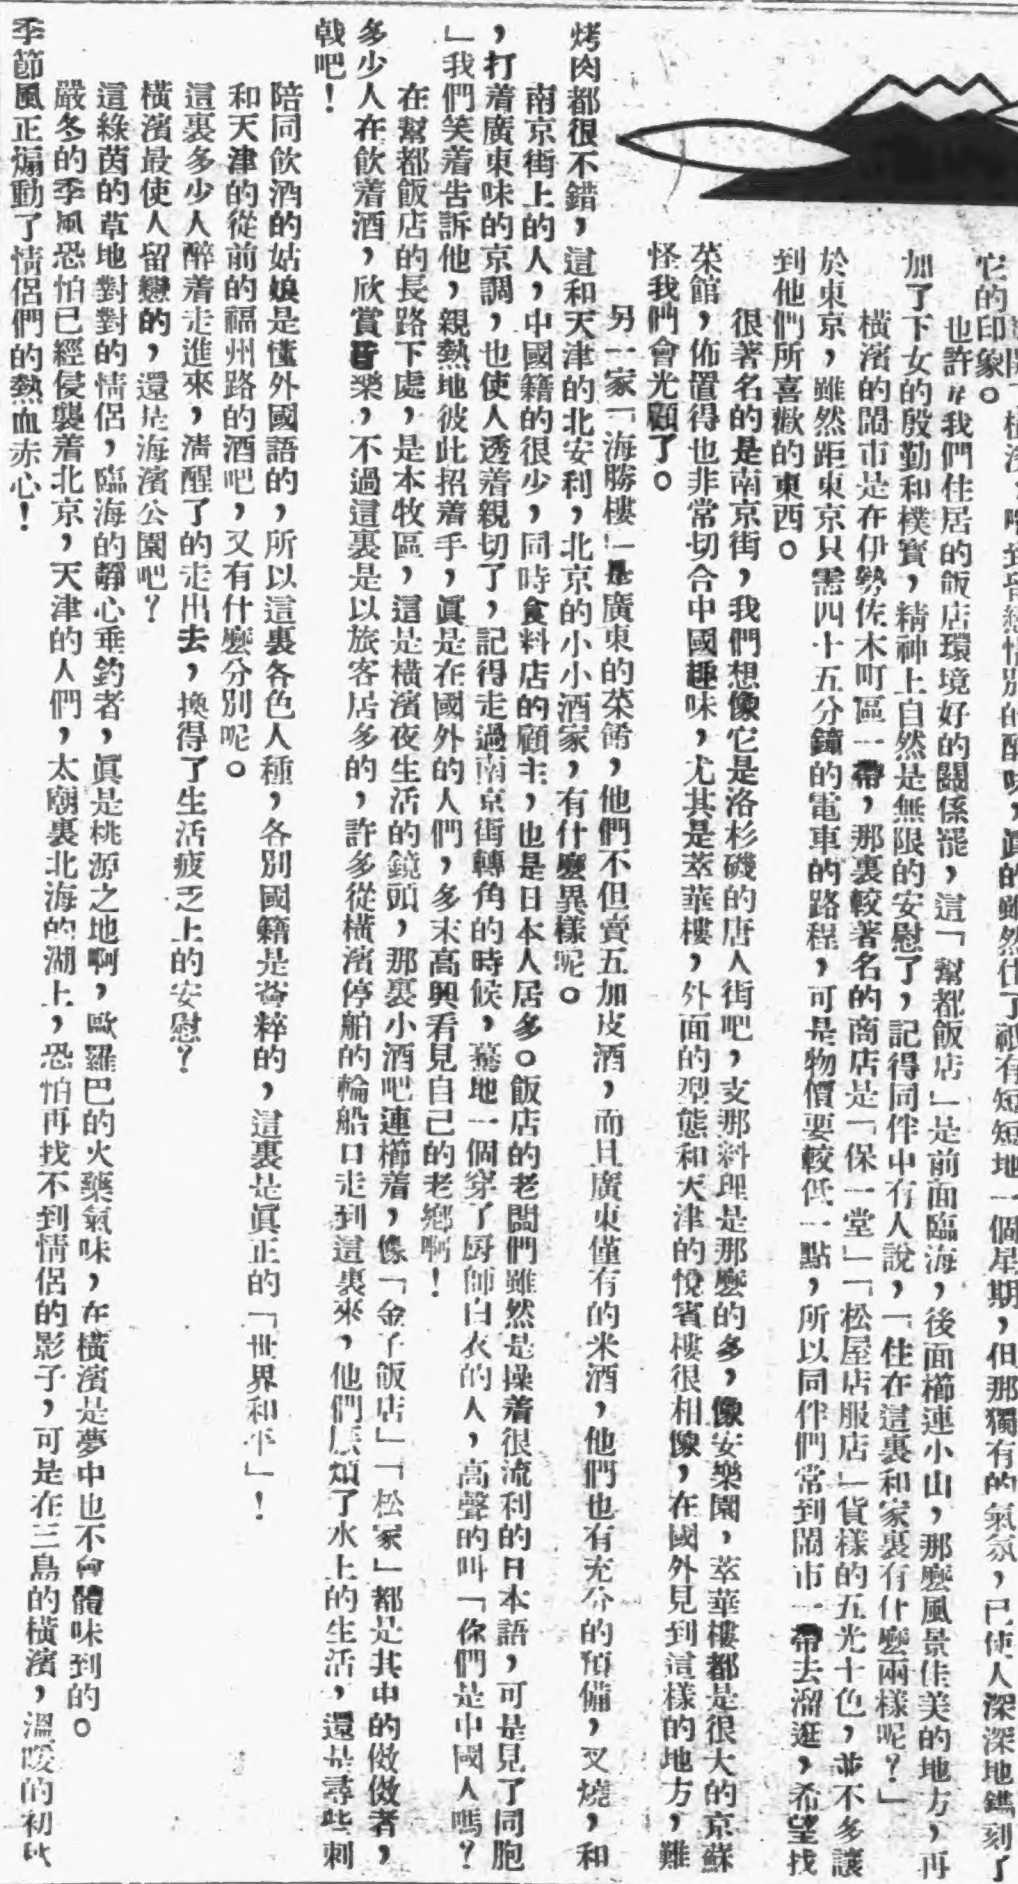 橫濱，嗜到曾經惜別的醉味，眞的雖然住了祇有短短地一個星期，但那獨有的氣氛，已使人深深地鐫刻了
它的印象。
也許我們住居的飯店環境好的關係罷，這「幫都飯店」是前面臨海，後面櫛連小山，那麽風景佳美的地方，再
加了下女的殷勤和樸實，精神上自然是無限的安慰了，記得同伴中有人說，「住在這裏和家裏有什麽兩樣呢？」
橫濱的鬧市是在伊勢佐木町區一帶，那裏較著名的商店是「保一堂」「松屋店服店」貨樣的五光十色，並不多讓
於東京，雖然距東京只需四十五分鐘的電車的路程，可是物價要較低一點，所以同伴們常到鬧市一帶去溜逛，希望找
到他們所喜歡的東西。
很著名的是南京街，我們想像它是洛杉磯的唐人街吧，支那料理是那麽的多，像安樂園，萃華樓都是很大的京蘇
菜館，佈置得也非常切合中國趣味，尤其是萃華樓，外面的型態和天津的悅賓樓很相像，在國外見到這樣的地方，難
怪我們會光顧了。
另一家「海勝樓」是廣東的菜館，他們不但賣五加皮酒，而且廣東僅有的米酒，他們也有充分的預備，叉燒，和
烤肉都很不錯，這和天津的北安利，北京的小小酒家，有什麽異樣呢。
南京街上的人，中國籍的很少，同時食料店的顧主，也是日本人居多。飯店的老闆們雖然是操着很流利的日本語，可是見了同胞
，打着廣東味的京調，也使人透着親切了，記得走過南京街轉角的時候，驀地一個穿了厨師白衣的人，高聲的叫「你們是中國人嗎？
」我們笑着告訴他，親熱地彼此招着手，眞是在國外的人們，多末高興看見自己的老鄉啊！
在幫都飯店的長路下處，是本牧區，這是橫濱夜生活的鏡頭，那裏小酒吧連櫛着，像「金子飯店」「松家」都是其中的佼佼者，
多少人在飲着酒，欣賞音樂，不過這裏是以旅客居多的，許多從橫濱停舶的輪船口走到這裏來，他們厭煩了水上的生活，還是尋些刺
戟吧！
陪同飲酒的姑娘是懂外國語的，所以這裏各色人種，各別國籍是薈粹的，這裏是眞正的「世界和平」！
和天津的從前的福州路的酒吧，又有什麽分別呢。
這裏多少人醉着走進來，淸醒了的走出去，換得了生活疲乏上的安慰？
橫濱最使人留戀的，還是海濱公園吧？
這綠茵的草地對對的情侶，臨海的靜心垂釣者，眞是桃源之地啊，歐羅巴的火藥氣味，在橫濱是夢中也不會體味到的。
嚴冬的季風恐怕已經侵襲着北京，天津的人們，太廟裏北海的湖上，恐怕再找不到情侶的影子，可是在三島的橫濱，溫暖的初秋
季節風正煽動了情侶們的熱血赤心！